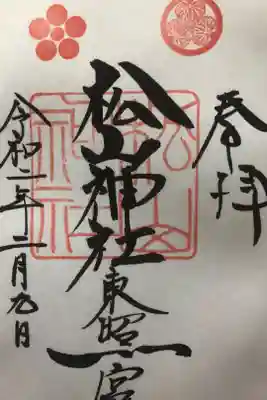 奉拝
松山神社
東照宮
令和二年二月九日